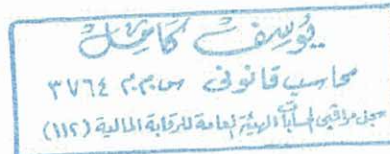 يوسف كامل
محاسب قانونى س.م.م ٣٧٦٤
سجل مراقبى حسابات الهيئة العامة للرقابة المالية (١١٢)